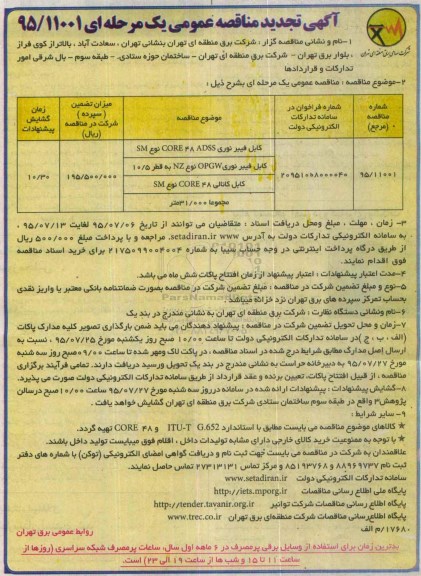 آگهی تجدید مناقصه عمومی یک مرحله ای ۹۵/۱۱۰۰۱
۱-نام و نشانی مناقصه گزار : شرکت برق منطقه ای تهران بنشانی تهران ، سعادت آباد ، بالاتر از کوی فراز
، بلوار برق تهران - شرکت برق منطقه ای تهران - ساختمان حوزه ستادی - طبقه سوم - بال شرقی امور
تدارکات و قراردادها
۲-موضوع مناقصه : مناقصه عمومی یک مرحله ای بشرح ذیل :
شماره مناقصه (مرجع)
شماره فراخوان در سامانه تدارکات الکترونیکی دولت
موضوع مناقصه
میزان تضمین (سپرده) شرکت در مناقصه (ریال)
زمان گشایش پیشنهادات
۹۵/۱۱۰۰۱
۲۰۹۵۱۰۶۸۰۰۰۰۴۰
کابل فیبر نوری CORE ۴۸ ADSS نوع SM
کابل فیبر نوری OPGW نوع NZ به قطر ۱۰/۵
کابل کانالی CORE ۴۸ نوع SM
مجموعا ۳۱/۰۰۰متر
۱۹۵/۵۰۰/۰۰۰
۱۰/۳۰
۳- زمان ، مهلت ، مبلغ ومحل دریافت اسناد : متقاضیان می توانند از تاریخ ۹۵/۰۷/۰۶ لغایت ۹۵/۰۷/۱۳ ،
به سامانه الکترونیکی تدارکات دولت به آدرس setadiran.ir. www مراجعه و با پرداخت مبلغ ۵۰۰/۰۰۰ ریال
از طریق درگاه پرداخت اینترنتی در وجه حساب سیبا به شماره ۲۱۷۵۰۹۹۰۰۴۰۰۴ برای خرید اسناد مناقصه
فوق اقدام نمایند.
۴-مدت اعتبار پیشنهادات : اعتبار پیشنهاد از زمان افتتاح پاکات شش ماه می باشد.
۵-نوع و مبلغ تضمین شرکت در مناقصه : مبلغ تضمین شرکت در مناقصه بصورت ضمانتنامه بانکی معتبر یا واریز نقدی
بحساب تمرکز سپرده های برق تهران نزد خزانه میباشد
۶-نام ونشانی دستگاه نظارت : شرکت برق منطقه ای تهران به نشانی مندرج در بند یک
۷-زمان و محل تحویل تضمین شرکت در مناقصه : پیشنهاد دهندگان می باید ضمن بارگذاری تصویر کلیه مدارک پاکات
(الف ، ب ، ج )در سامانه تدارکات الکترونیکی دولت تا ساعت ۱۰/۰۰ صبح روز یکشنبه مورخ ۹۵/۰۷/۲۵ ، نسبت به
ارسال اصل مدارک مطابق شرایط درج شده در اسناد مناقصه ، در پاکت لاک ومهر شده تا ساعت ۰۹/۰۰صبح روز سه شنبه
مورخ ۹۵/۰۷/۲۷ به دبیرخانه حراست به نشانی مندرج در بند یک تحویل ورسید دریافت دارند. تمامی فرآیند برگزاری
مناقصه ، از قبیل افتتاح پاکات، تعیین برنده و عقد قرارداد از طریق سامانه تدارکات الکترونیکی دولت صورت می پذیرد.
۸-گشایش پیشنهادات : پیشنهادات ارائه شده در سامانه درروز سه شنبه مورخ ۹۵/۰۷/۲۷ ساعت ۱۰/۰۰ صبح درسالن
پژوهش۳ واقع در طبقه سوم ساختمان ستادی شرکت برق منطقه ای تهران گشایش خواهد یافت .
۹- سایر شرایط :
★ کالاهای موضوع مناقصه می بایست مطابق با استاندارد ITU-T G.652 و CORE ۴۸ تهیه گردد.
★ با توجه به ممنوعیت خرید کالای خارجی دارای مشابه تولیدات داخل ، اقلام فوق میبایست تولید داخل باشند.
علاقمندان به شرکت در مناقصه می بایست جهت ثبت نام و دریافت گواهی امضای الکترونیکی (توکن) با شماره های دفتر
ثبت نام ۸۸۹۶۹۷۳۷ و ۸۵۱۹۳۷۶۸ و مرکز تماس ۲۷۳۱۳۱۳۱ تماس حاصل نمایند.
سامانه تدارکات الکترونیکی دولت www.setadiran.ir
پایگاه ملی اطلاع رسانی مناقصات http://iets.mporg.ir
پایگاه اطلاع رسانی مناقصات شرکت توانیر http://tender.tavanir.org.ir
پایگاه اطلاع رسانی مناقصات شرکت برق منطقه‌ای تهران www.trec.co.ir
۱۷۶۸۰/م الف
روابط عمومی برق تهران
بهترین زمان برای استفاده از وسایل برقی پرمصرف در ۶ ماهه اول سال، ساعات پرمصرف شبکه سراسری (روزها از
ساعت ۱۱ تا ۱۵ و شب ها از ساعت ۱۹ الی ۲۳) است.